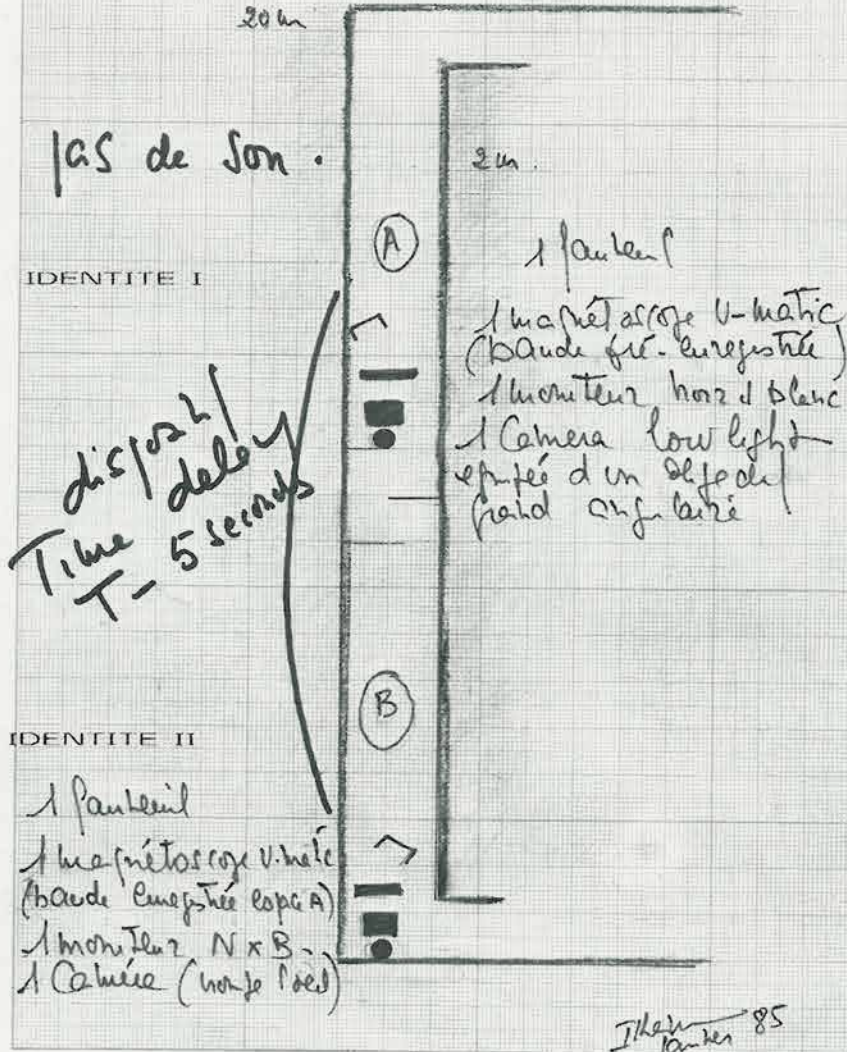 20 m
pas de son.
2 m.
A
IDENTITE I
1 fauteuil
1 magnétoscope U-matic
(bande pré-enregistrée)
1 moniteur noir & blanc
1 Camera low light
équipée d'un objectif
grand angulaire
Time delay
T- 5 seconds
B
IDENTITE II
1 fauteuil
1 magnétoscope U.matic
(bande enregistrée A)
1 moniteur N x B-
1 Caméra
85